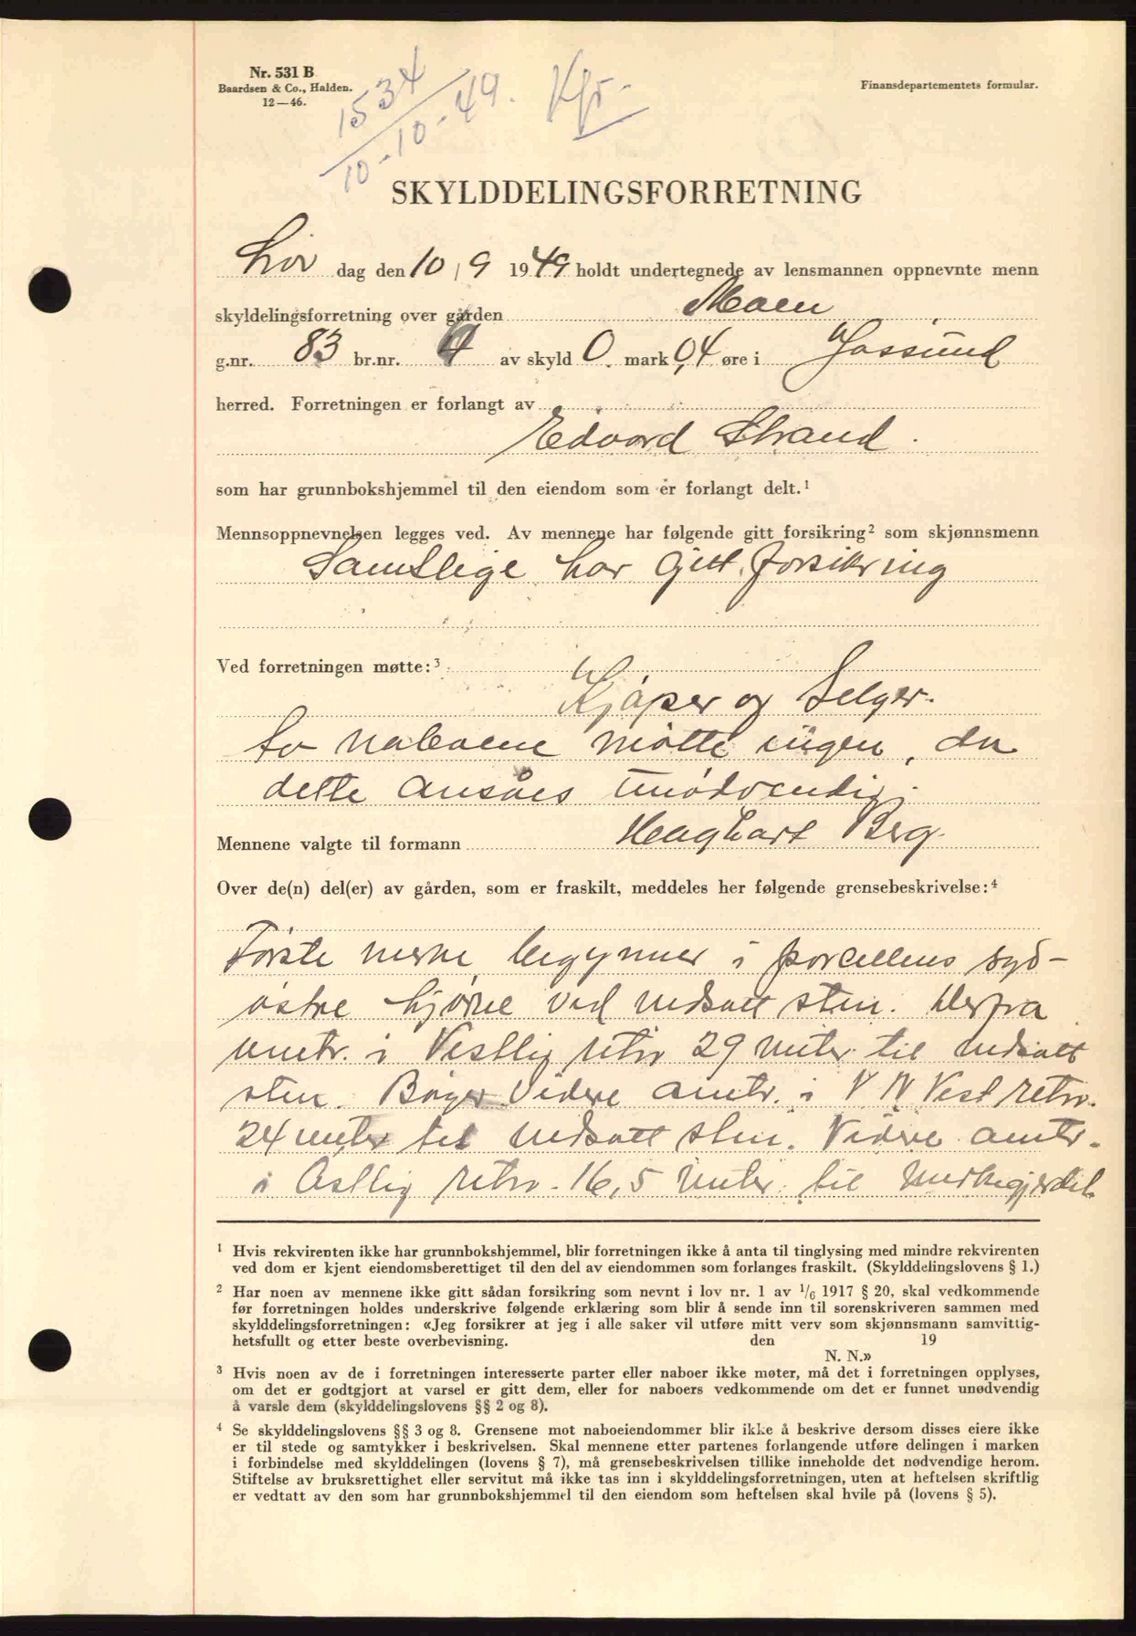 Nr. 531 B
Baardsen & Co., Halden.
12—46.
1534
10-10-49. Kfr.
Finansdepartementets formular.
SKYLDDELINGSFORRETNING
Lør dag den 10 / 9 1949 holdt undertegnede av lensmannen oppnevnte menn
skyldelingsforretning over gården Moen
g.nr. 83 br.nr. 4 av skyld 0. mark 0,4 øre i Jøssund
herred. Forretningen er forlangt av
Edvard Strand.
som har grunnbokshjemmel til den eiendom som er forlangt delt.¹
Mennsoppnevnelsen legges ved. Av mennene har følgende gitt forsikring² som skjønnsmenn
Samtlige har gitt forsikring
Ved forretningen møtte:³
Kjøper og Selger.
Av naboene møtte ingen, da
dette ansåes unødvendig.
Mennene valgte til formann Berg.
Over de(n) del(er) av gården, som er fraskilt, meddeles her følgende grensebeskrivelse:⁴
Første merke begynner i parcellens syd-
østre hjørne ved nedsatt sten. Derfra
omtr. i Vestlig retn 29 meter til nedsatt
sten. Bøyer Videre omtr. i V N Vest retn.
24 meter til nedsatt sten. Videre omtr.
i Østlig retn. 16,5 meter til merkegjerdet
¹ Hvis rekvirenten ikke har grunnbokshjemmel, blir forretningen ikke å anta til tinglysing med mindre rekvirenten
ved dom er kjent eiendomsberettiget til den del av eiendommen som forlanges fraskilt. (Skylddelingslovens § 1.)
² Har noen av mennene ikke gitt sådan forsikring som nevnt i lov nr. 1 av ¹/₆ 1917 § 20, skal vedkommende
før forretningen holdes underskrive følgende erklæring som blir å sende inn til sorenskriveren sammen med
skylddelingsforretningen: «Jeg forsikrer at jeg i alle saker vil utføre mitt verv som skjønnsmann samvittig-
hetsfullt og etter beste overbevisning. den 19
N. N.»
³ Hvis noen av de i forretningen interesserte parter eller naboer ikke møter, må det i forretningen opplyses,
om det er godtgjort at varsel er gitt dem, eller for naboers vedkommende om det er funnet unødvendig
å varsle dem (skylddelingslovens §§ 2 og 8).
⁴ Se skylddelingslovens §§ 3 og 8. Grensene mot naboeiendommer blir ikke å beskrive dersom disses eiere ikke
er til stede og samtykker i beskrivelsen. Skal mennene etter partenes forlangende utføre delingen i marken
i forbindelse med skylddelingen (lovens § 7), må grensebeskrivelsen tillike inneholde det nødvendige herom.
Stiftelse av bruksrettighet eller servitut må ikke tas inn i skylddelingsforretningen, uten at heftelsen skriftlig
er vedtatt av den som har grunnbokshjemmel til den eiendom som heftelsen skal hvile på (lovens § 5).